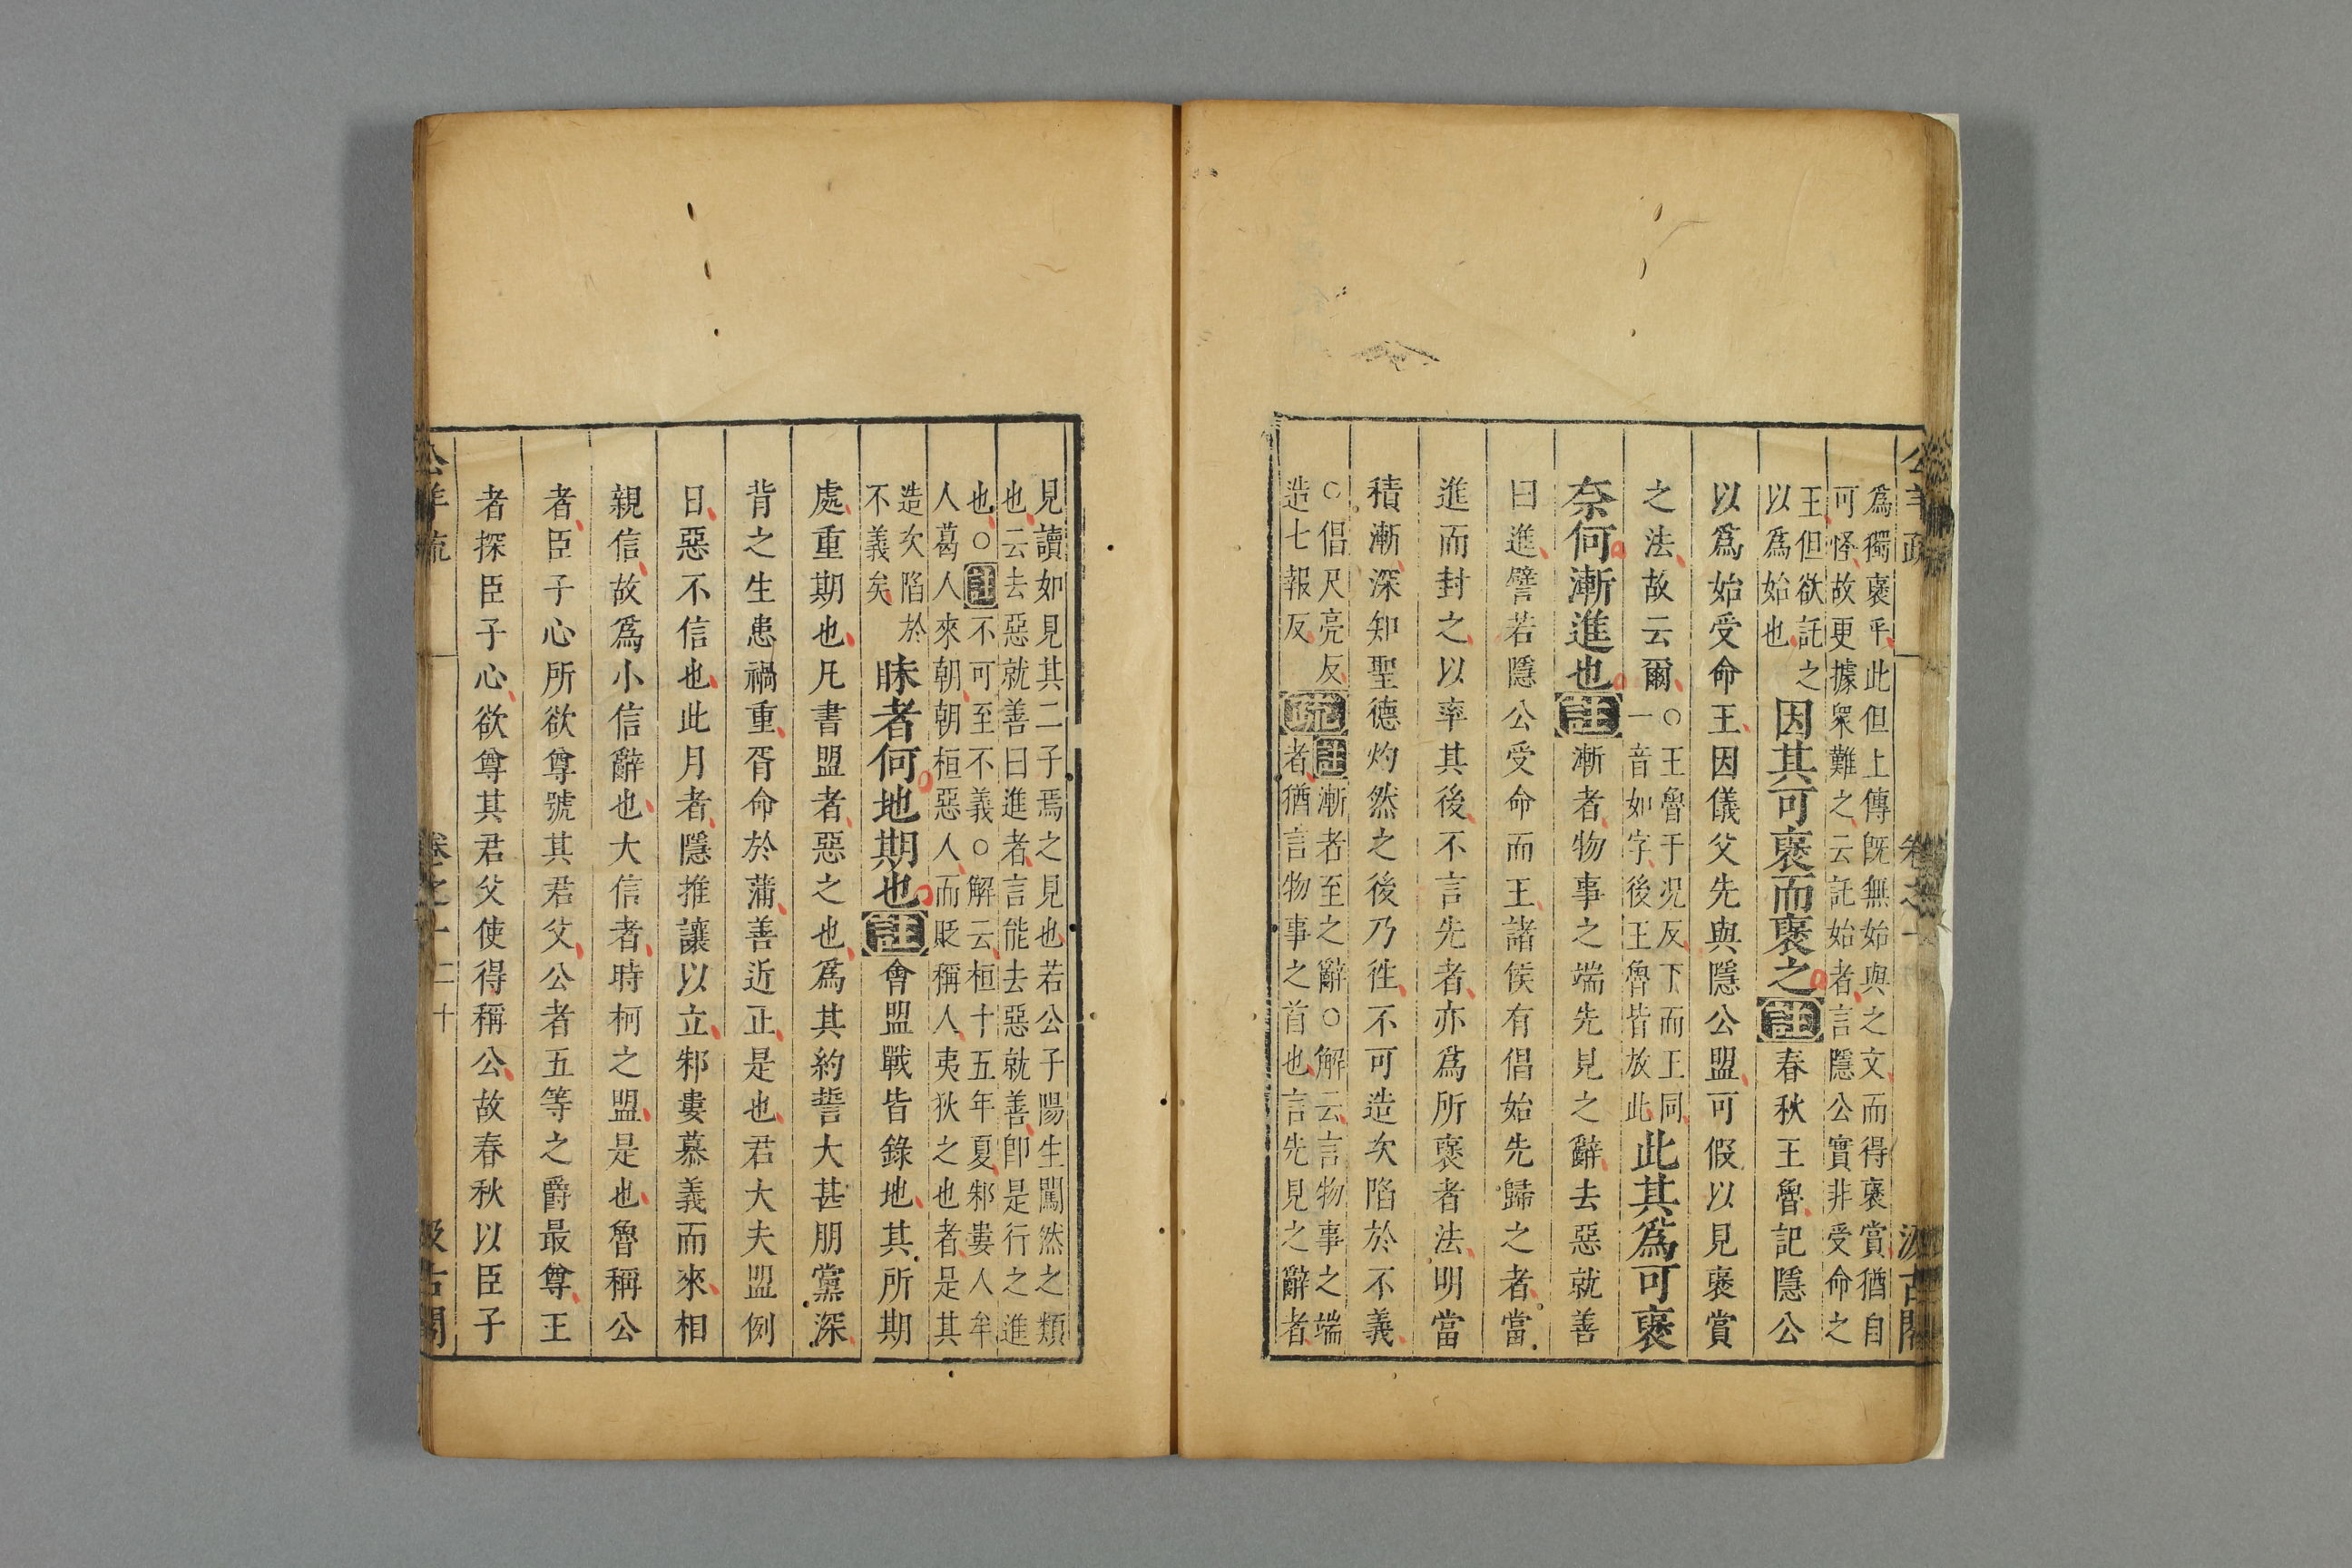 公羊疏　卷之一　汲古閣
爲獨褒乎此但上傳既無始與之文而得褒賞猶自
可怪故更據衆難之云託始者言隱公實非受命之
王但欲託之
以爲始也
因其可褒而褒之註春秋王魯記隱公
以爲始受命王因儀父先與隱公盟可假以見褒賞
之法故云爾
○王魯于况反下而王同
一音如字後王魯皆放此
此其爲可褒
奈何漸進也註漸者物事之端先見之辭去惡就善
曰進譬若隱公受命而王諸侯有倡始先歸之者當
進而封之以率其後不言先者亦爲所褒者法明當
積漸深知聖德灼然之後乃徃不可造次陷於不義
○倡尺亮反
造七報反
疏
註漸者至之辭○解云言物事之端
者猶言物事之首也言先見之辭者
見讀如見其二子焉之見也若公子陽生闖然之類
也云去惡就善曰進者言能去惡就善卽是行之進
也○註不可至不義○解云桓十五年夏邾婁人牟
人葛人來朝朝桓惡人而貶稱人夷狄之也者是其
造次陷於
不義矣
眛者何地期也註會盟戰皆錄地其所期
處重期也凡書盟者惡之也爲其約誓大甚朋黨深
背之生患禍重胥命於蒲善近正是也君大夫盟例
日惡不信也此月者隱推讓以立邾婁慕義而來相
親信故爲小信辭也大信者時柯之盟是也魯稱公
者臣子心所欲尊號其君父公者五等之爵最尊王
者探臣子心欲尊其君父使得稱公故春秋以臣子
公羊疏　卷之一　二十　汲古閣